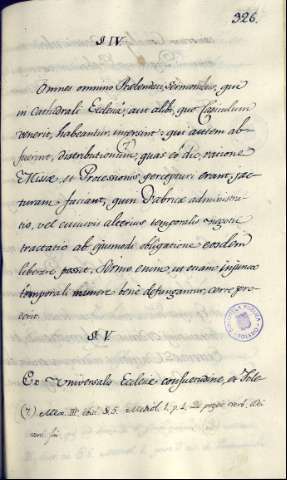 326.
§. IV.
Omnes omnino Prebendati, Sermonibus, qui
in Cathedrali Ecclesiâ, aut alibi, quo Capitulum
venerit, habeantur, intersint: qui autem ab
fuerint, distributionum, (7) quas eâ die, ratione
Missæ, et Processionis percepturi erant, jac-
turam faciant, quin Fabricæ administra
tio, vel cujusvis alterius temporalis negotii
tractatio ab ejusmodi obligatione eosdem
liberare possit. Sermo enim, ut etiam injuncto
temporali munere bene defungantur, certe pro-
erit.
§. V.
Ex Universalis Ecclesiæ consuetudine, et Tole
(7)